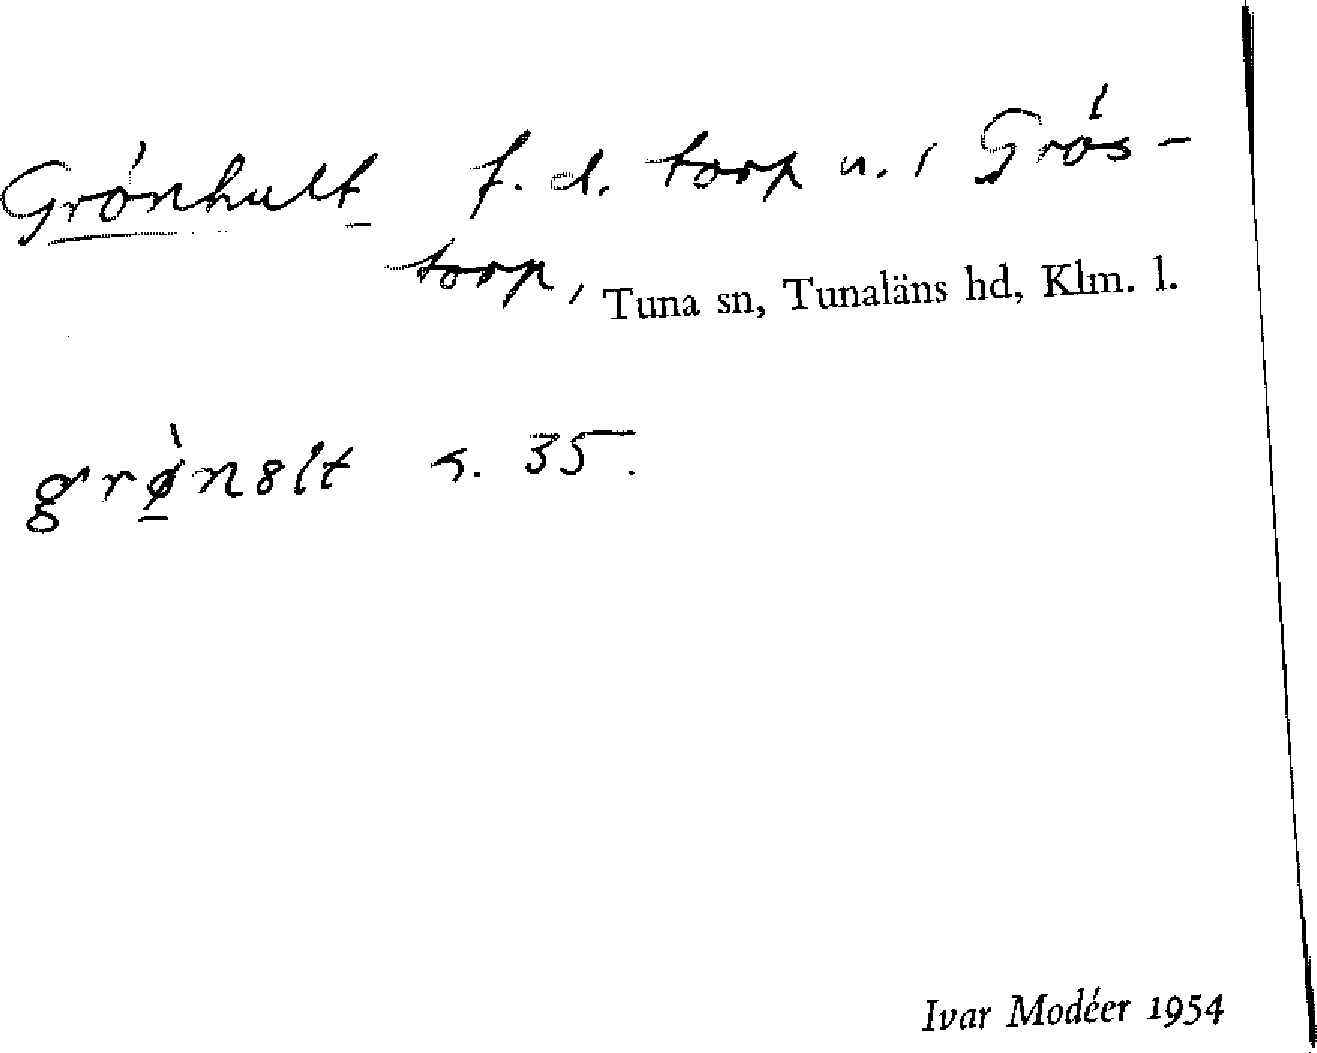 Grönhult f. d. torp u. i Grös-
torp, Tuna sn, Tunaläns hd, Klm. l.
s. 35.
Ivar Modéer 1954